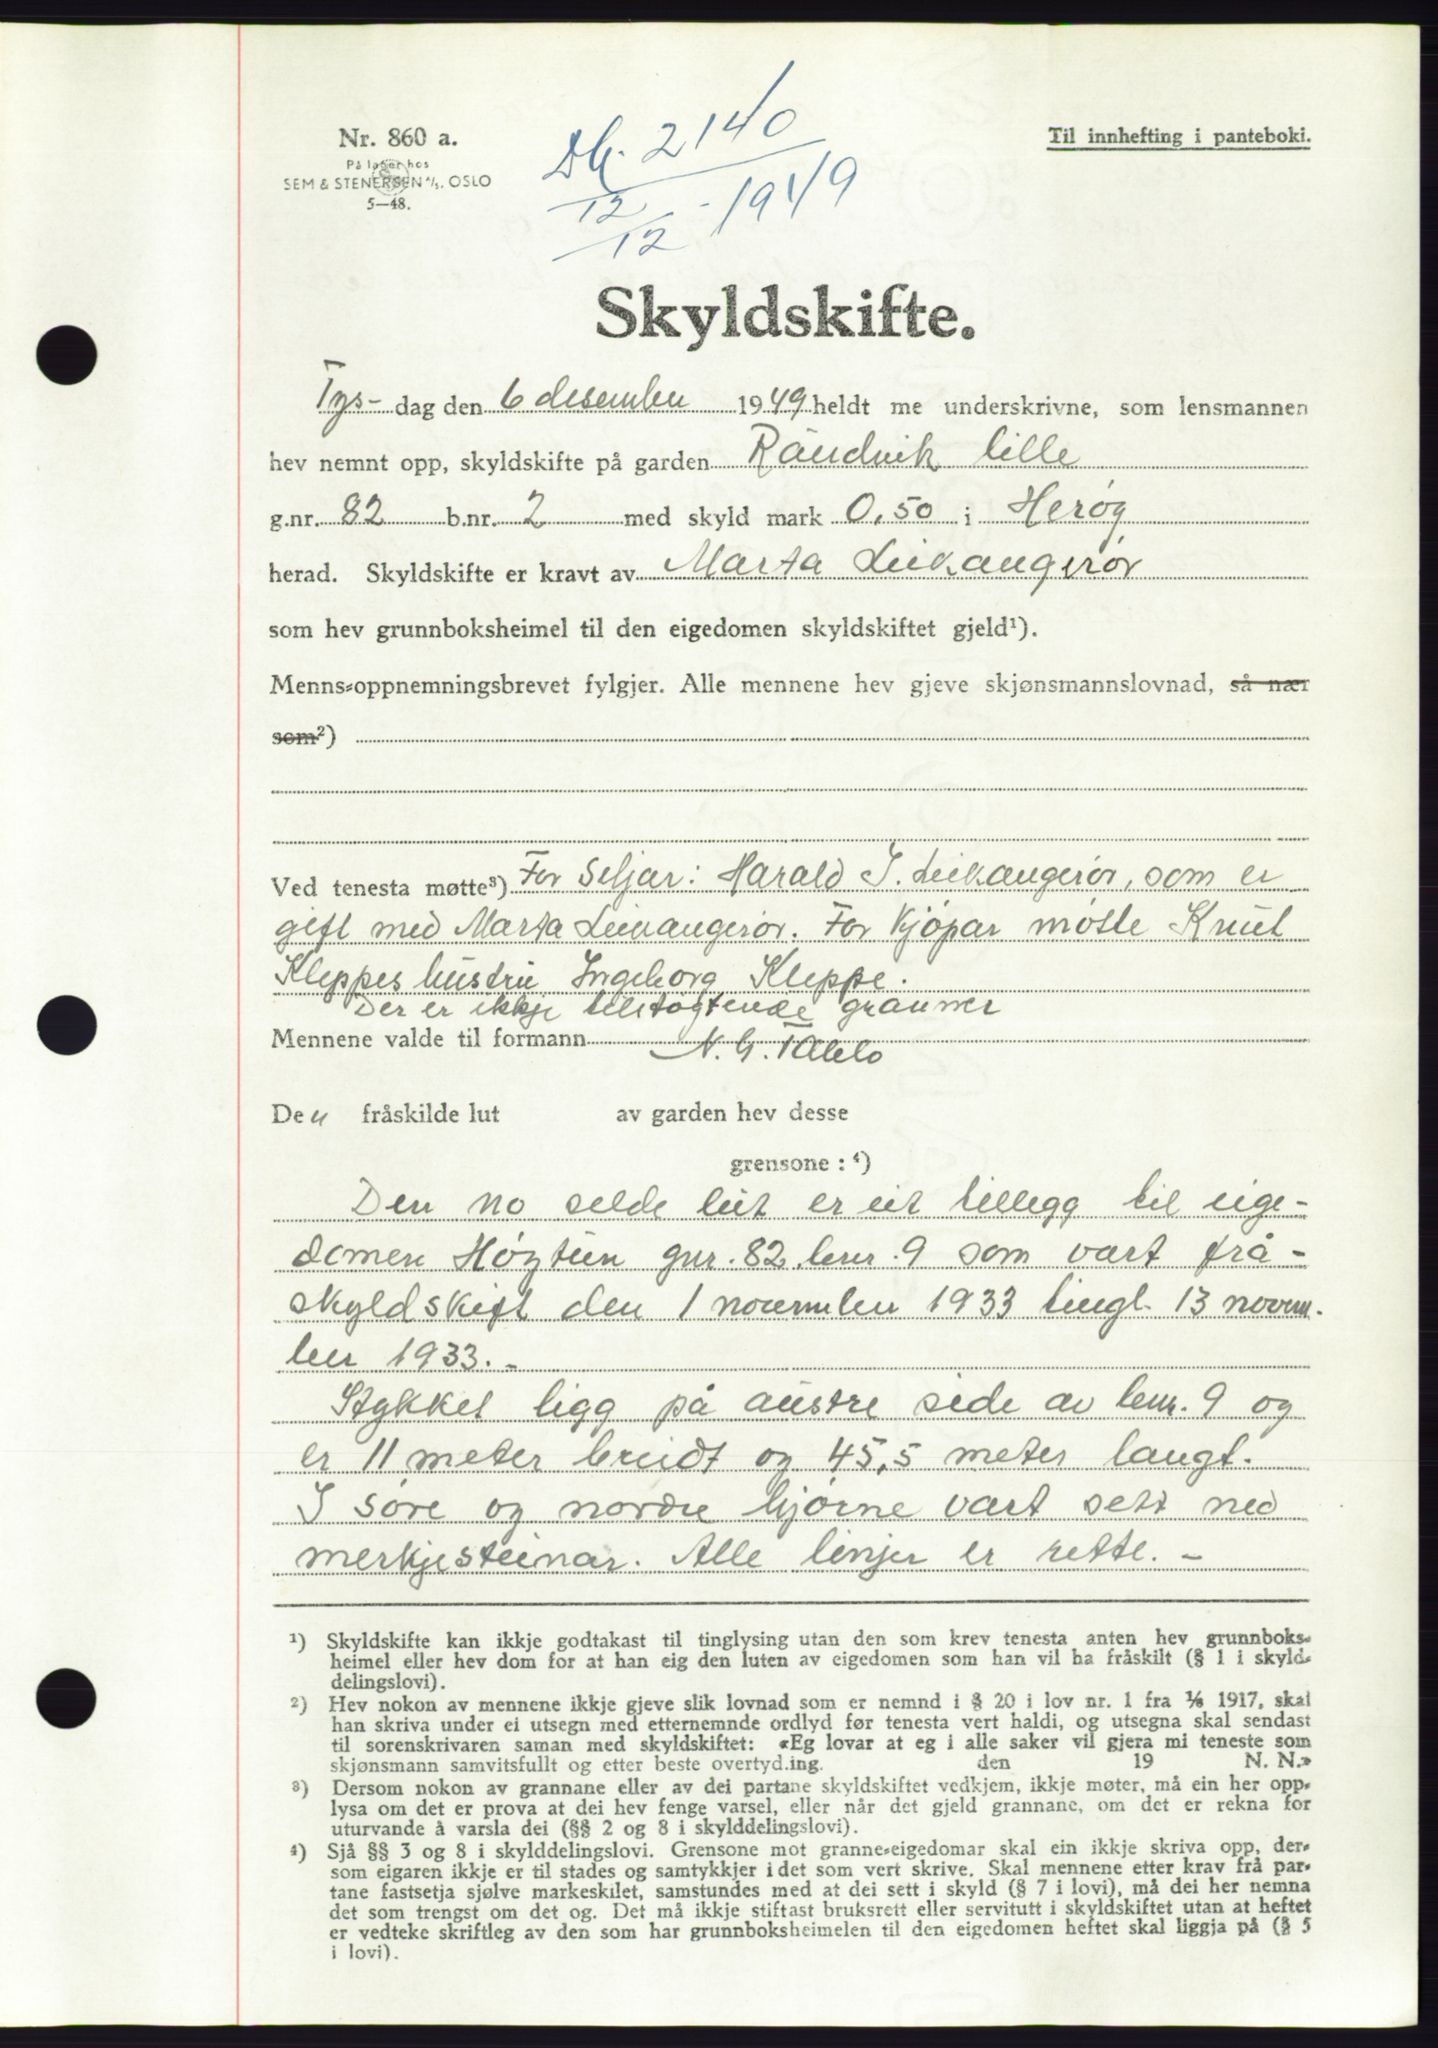 Nr. 860 a.
På lager hos
SEM & STENERSEN A/S, OSLO
5—48.
Til innhefting i panteboki.
Db. 2140
12/12 - 1949
Skyldskifte.
Tys- dag den 6 desember 1949 heldt me underskrivne, som lensmannen
hev nemnt opp, skyldskifte på garden Røudvik lille
g.nr. 82 b.nr. 2 med skyld mark 0,50 i Herøy
herad. Skyldskifte er kravt av Marta Leikangerør
som hev grunnboksheimel til den eigedomen skyldskiftet gjeld¹).
Menns-oppnemningsbrevet fylgjer. Alle mennene hev gjeve skjønsmannslovnad, så nær
som²)
Ved tenesta møtte³) For seljar: Harald J. Leikangerør, som er
gift med Marta Leikangerør. For kjøpar møtte Knut
Kleppes hustru Ingeborg Kleppe.
Der er ikkje tilstøytende granner
Mennene valde til formann N. G.
Den fråskilde lut av garden hev desse
grensone: ⁴)
Den no selde lut er eit tillegg til eige-
domen Høgtun gnr. 82 bnr. 9 som vart frå-
skyldskift den 1 november 1933 tingl. 13 novem-
ber 1933. -
Stykket ligg på austre side av bnr. 9 og
er 11 meter breidt og 45,5 meter langt.
I søre og nordre hjørne vart sett ned
merkjesteinar. Alle linjer er rette. -
¹) Skyldskifte kan ikkje godtakast til tinglysing utan den som krev tenesta anten hev grunnboks-
heimel eller hev dom for at han eig den luten av eigedomen som han vil ha fråskilt (§ 1 i skyld-
delingslovi).
²) Hev nokon av mennene ikkje gjeve slik lovnad som er nemnd i § 20 i lov nr. 1 fra 1/6 1917, skal
han skriva under ei utsegn med etternemnde ordlyd før tenesta vert haldi, og utsegna skal sendast
til sorenskrivaren saman med skyldskiftet: «Eg lovar at eg i alle saker vil gjera mi teneste som
skjønsmann samvitsfullt og etter beste overtyd.ing. den 19 N. N.»
³) Dersom nokon av grannane eller av dei partane skyldskiftet vedkjem, ikkje møter, må ein her opp-
lysa om det er prova at dei hev fenge varsel, eller når det gjeld grannane, om det er rekna for
uturvande å varsla dei (§§ 2 og 8 i skylddelingslovi).
⁴) Sjå §§ 3 og 8 i skylddelingslovi. Grensone mot granne-eigedomar skal ein ikkje skriva opp, der-
som eigaren ikkje er til stades og samtykkjer i det som vert skrive. Skal mennene etter krav frå par-
tane fastsetja sjølve markeskilet, samstundes med at dei sett i skyld (§ 7 i lovi), må dei her nemna
det som trengst om det og. Det må ikkje stiftast bruksrett eller servitutt i skyldskiftet utan at heftet
er vedteke skriftleg av den som har grunnboksheimelen til den eigedomen heftet skal liggja på (§ 5
i lovi).